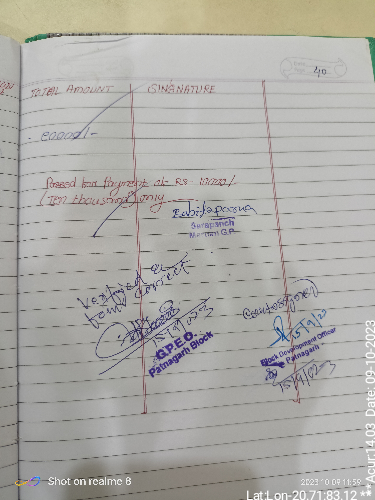 40
TOTAL AMOUNT SIGNATURE
Passed for Payment of Rs 10000/
(Ten thousand) only
Sarapanch
G.P.
Verified &
found correct
15/9/2023
G.P.E.O.
Patnagarh Block
Countersigned
15/9/23
Block Development Officer
Patnagarh
15/9/23
2023 10 09 11:59
Shot on realme 8
Lat:Lon-20.71:83.12 ** Acur:14.03 Date: 09-10-2023